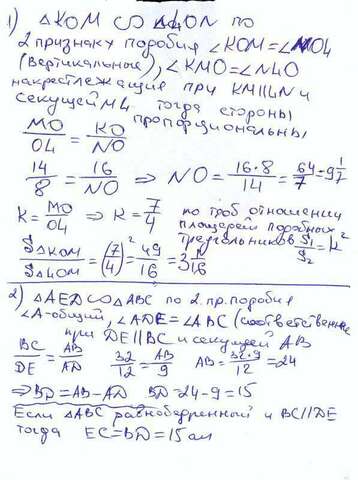 1) △KOM ∽ △4ON по
2 признаку подобия ∠KOM=∠NO4
(вертикальные), ∠KMO=∠N4O
накрестлежащие при KM∥4N и
секущей M4 тогда стороны
пропорциональны
MO/O4 = KO/NO
14/8 = 16/NO ⇒ NO = 16·8/14 = 64/7 = 9 1/7
K = MO/O4 ⇒ K = 7/4 по
отношении
площадей подобных
треугольников S₁/S₂ = k²
S△KOM/S△4OM = (7/4)² = 49/16 = 3 1/16
2) △AED ∽ △ABC по 2.пр.подобия
∠A-общий, ∠ADE=∠ABC (соответственные
при DE∥BC и секущей AB
BC/DE = AB/AD 32/12 = AB/9 AB = 32·9/12 = 24
⇒ BD=AB-AD BD=24-9=15
Если △ABC равнобедренный и BC∥DE
тогда EC=BD=15 см